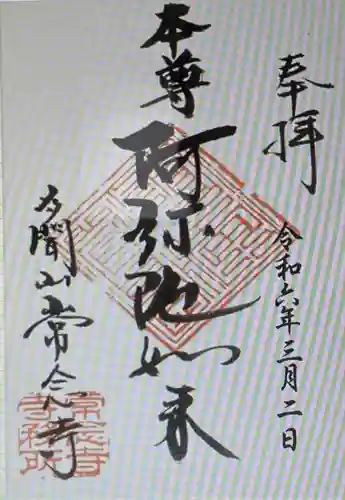 奉拝
令和六年三月二日
本尊
阿弥陀如来
多聞山常念寺